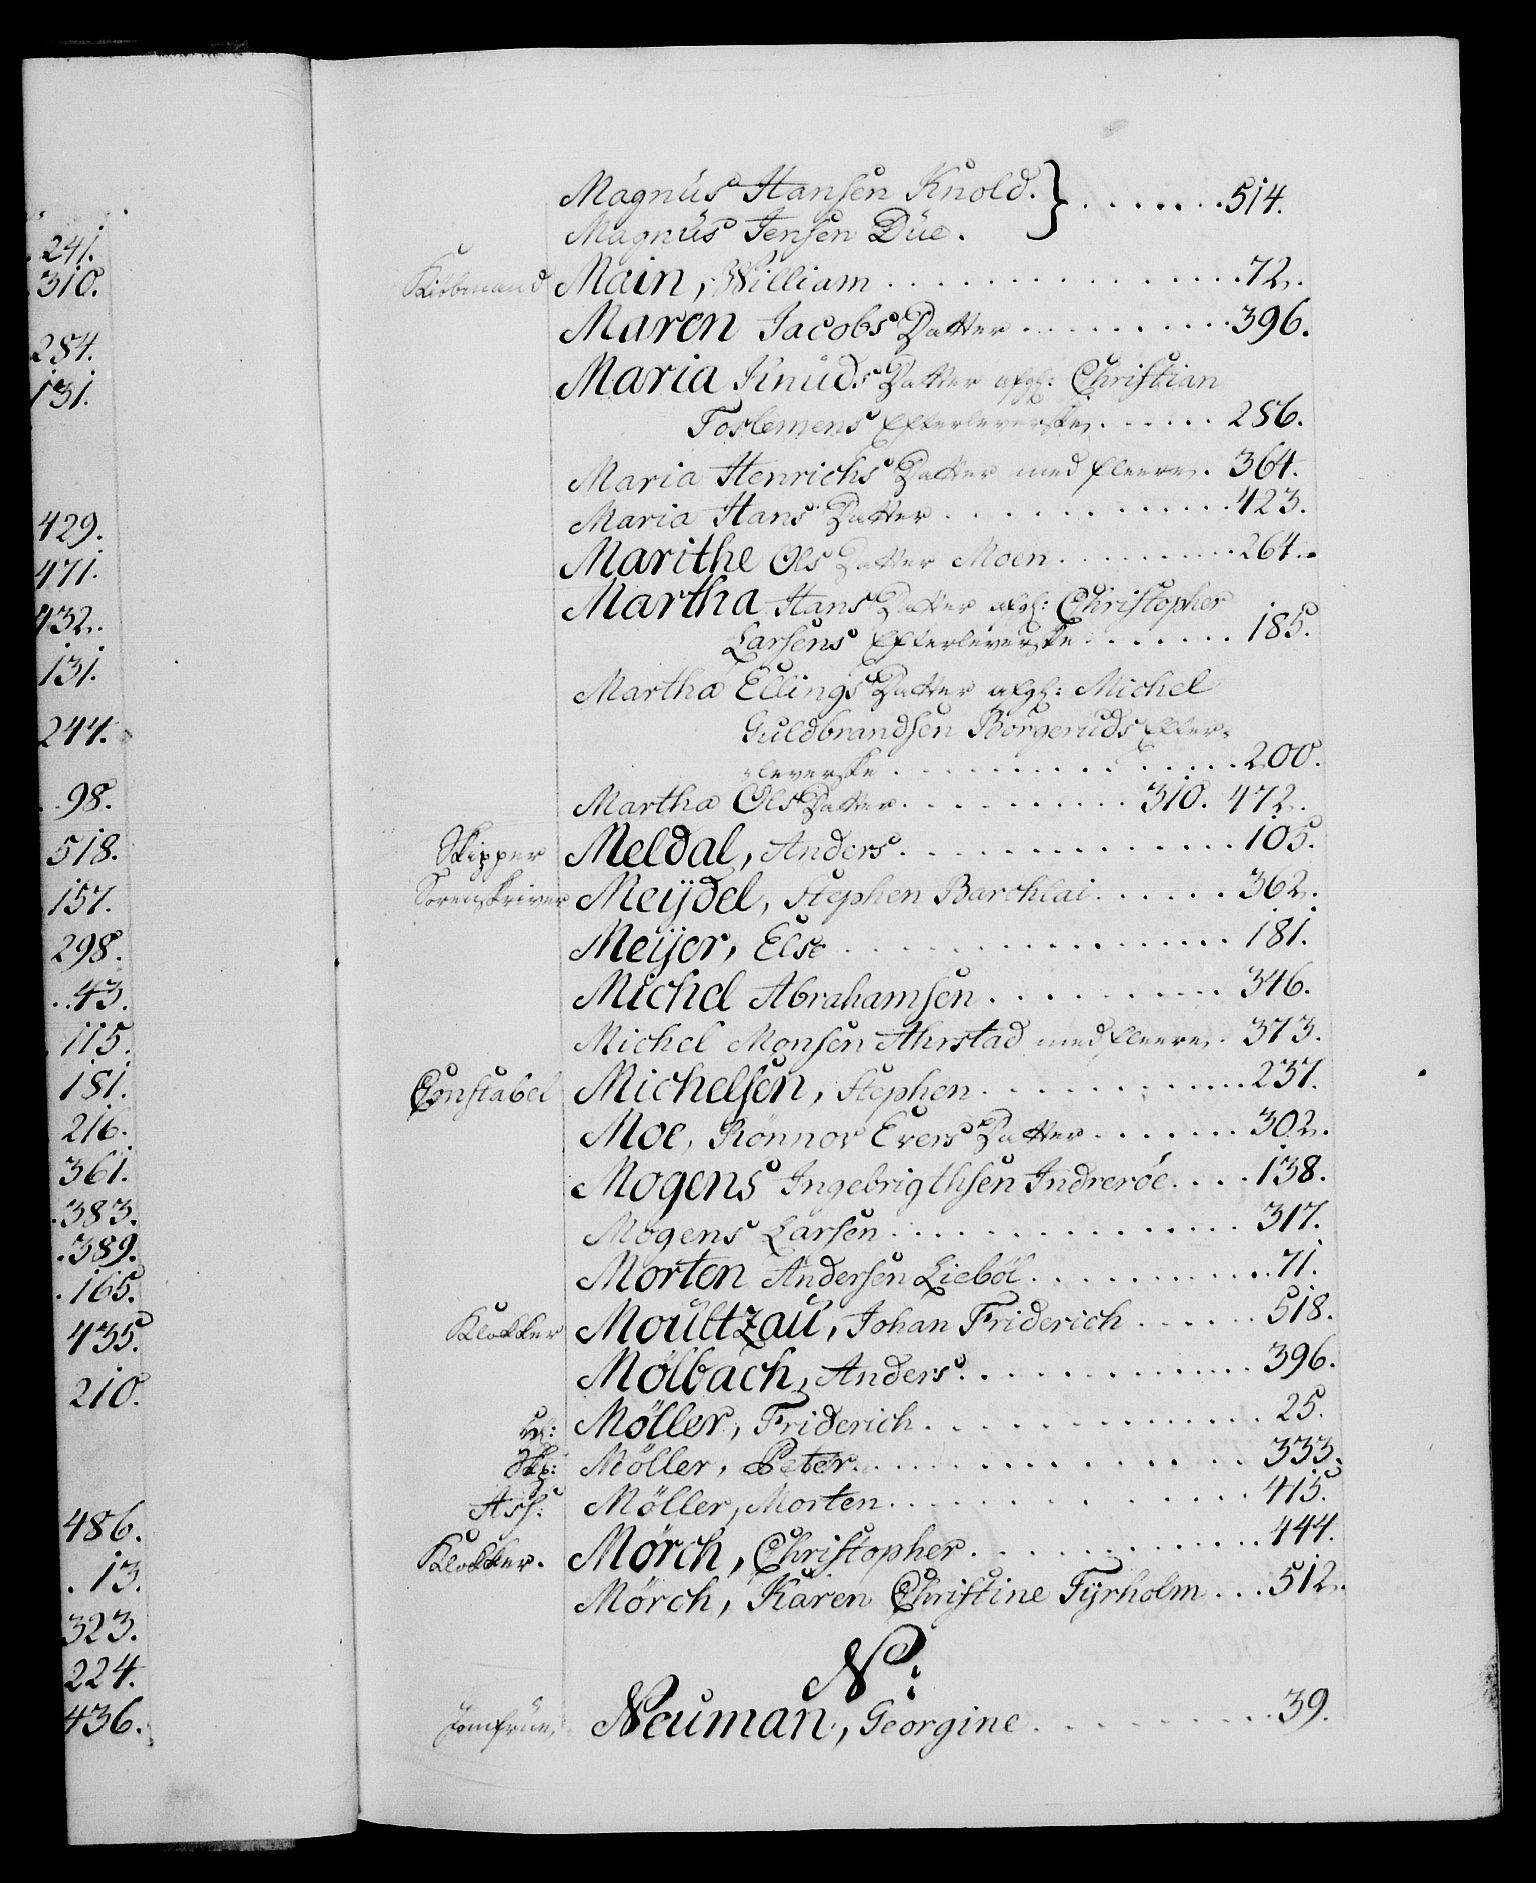 241.
310.
284.
131.
429.
471.
432.
131.
244.
98.
518.
157.
298.
43.
115.
181.
216.
361.
383.
389.
165.
435.
210.
486.
13.
323.
224.
436.
Magnus Hansen Knold. } . . . . . . . 514.
Magnus Jensen Düe.
Kiøbmand Main, William . . . . . . . . . . . . . 72.
Maren Jacobs Datter . . . . . . . . . . 396.
Maria Knuds Datter afg: Christian
Toslemens Efterleverske . . . . . . 286.
Maria Henrichs Datter med fleere . 364.
Maria Hans Datter . . . . . . . . . . . . 423.
Marithe Ols Datter Moen . . . . . . . . . 264.
Martha Hans Datter afg: Christopher
Larsens Efterleverske . . . . . . . 185.
Martha Ellings Datter afg: Michel
Guldbrandsen Borgeruds Efter-
-leverske . . . . . . . . . . . . . . 200.
Martha Ols Datter . . . . . . . . . 310. 472.
Skipper Meldal, Anders . . . . . . . . . . . . . 105.
Sorenskriver Meÿdel, Stephen Barchlai . . . . . . 362.
Meÿer, Else . . . . . . . . . . . . . . . 181.
Michel Abrahamsen . . . . . . . . . . 346.
Michel Monsen Ahrstad med fleere . 373.
Constabel Michelsen, Stephen . . . . . . . . . . . . 237.
Moe, Rönnov Evers Datter . . . . . . . 302.
Mogens Ingebrigthsen Indreröe . . . . 138.
Mogens Larsen . . . . . . . . . . . . . . 317.
Morten Andersen Lieböl . . . . . . . . . . . 71.
Klokker Moultzau, Johan Friderich . . . . . . 518.
Mölbach, Anders . . . . . . . . . . . . . 396.
Möller, Friderich . . . . . . . . . . . . . 25.
Skp: Möller, Peter . . . . . . . . . . . . . . . 333.
Ass: Möller, Morten . . . . . . . . . . . . . . 415.
Klokker. Mörch, Christopher . . . . . . . . . . . . 444.
Mörch, Karen Christine Tÿrholm . . . 512.
N:
Jomfrue, Neuman, Georgine . . . . . . . . . 39.